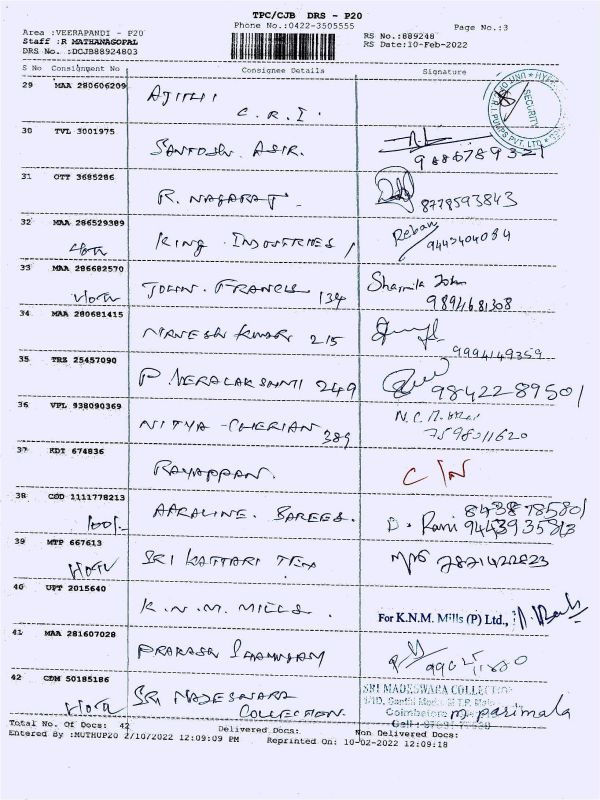 TPC/CJB DRS - P20
Phone No.:0422-3505555
Page No.:3
Area :VEERAPANDI - P20
Staff :R MATHANAGOPAL
DRS No. :DCJB88924803
RS No.:889248
RS Date:10-Feb-2022
S No Consignment No Consignee Details Signature
29 MAA 280606209 AJITH
C.R.I.
SECURITY
R.I PUMPS PVT. LTD
30 TVL 3001975 SANTOSH. ASIR.
9886789321
31 OTT 3685286 R. NAGARAJ -
8778593843
32 MAA 286529389 KING INDUSTRIES
9443404084
33 MAA 286682570 JOHN. FRANCIS 134 Sharmila John
9894681308
34 MAA 280681415 215
9994149359
35 TRZ 25457090 P. VERALAKSHMI 249 9842289501
36 VPL 938090369 NITYA CHERIAN 389
7598011620
37 KDT 674836 RAYAPPAN. C/N
38 COD 1111778213 SAREES. B. Rani
8438785801
9443935813
39 MTP 667613 SRI KATTARI TEX
40 UPT 2015640 K.N.M. MILLS. For K.N.M. Mills (P) Ltd.,
41 MAA 281607028 PRAKASH
42 CDM 50185186 SRI MADESWARA
COLLECTION.
SRI MADESWARA COLLECTION
Coimbatore M. Parimala
Total No. Of Docs: 42 Delivered Docs: Non Delivered Docs:
Entered By :MUTHUP20 2/10/2022 12:09:09 PM Reprinted On: 10-02-2022 12:09:18